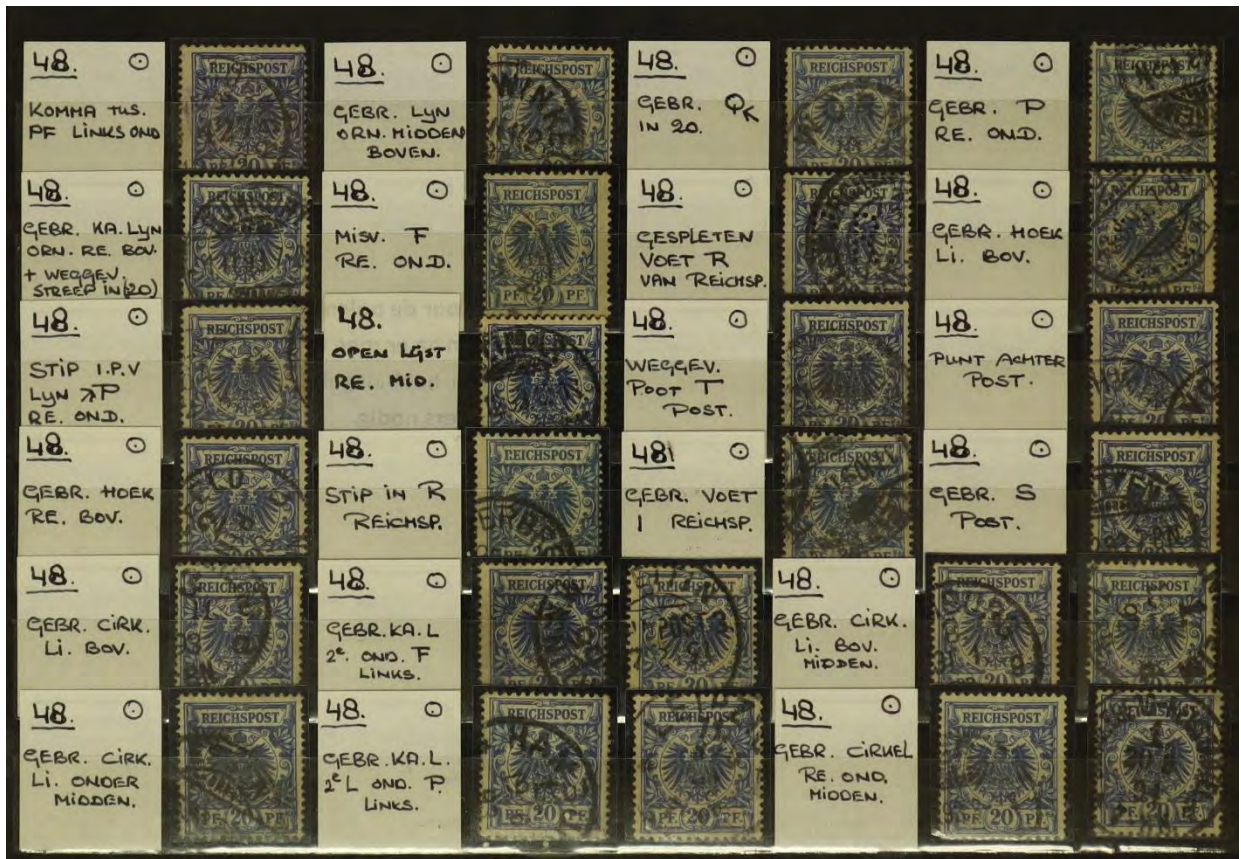 48. ⊙
KOMMA TUS.
PF LINKS OND
REICHSPOST
48. ⊙
GEBR. LYN
ORN. MIDDEN
BOVEN.
REICHSPOST
48. ⊙
GEBR. O
IN 20.
REICHSPOST
PF. 20 PF.
48. ⊙
GEBR. P
RE. OND.
REICHSPOST
48. ⊙
GEBR. KA. LYN
ORN. RE. BOV.
+ WEGGEV.
STREEP IN (20)
REICHSPOST
48. ⊙
MISV. F
RE. OND.
REICHSPOST
PF. 20 PF.
48. ⊙
GESPLETEN
VOET R
VAN REICHSP.
REICHSPOST
48. ⊙
GEBR. HOEK
LI. BOV.
REICHSPOST
48. ⊙
STIP I.P.V
LYN ↗P
RE. OND.
REICHSPOST
48.
OPEN LIJST
RE. MID.
48. ⊙
WEGGEV.
POOT T
POST.
REICHSPOST
48. ⊙
PUNT ACHTER
POST.
REICHSPOST
48. ⊙
GEBR. HOEK
RE. BOV.
REICHSPOST
48. ⊙
STIP IN R
REICHSP.
REICHSPOST
48 ⊙
GEBR. VOET
I REICHSP.
REICHSPOST
48. ⊙
GEBR. S
POST.
REICHSPOST
48. ⊙
GEBR. CIRK.
LI. BOV.
REICHSPOST
48. ⊙
GEBR. KA. L
2e. OND. F
LINKS.
REICHSPOST
48. ⊙
GEBR. CIRK.
LI. BOV.
MIDDEN.
REICHSPOST
REICHSPOST
48. ⊙
GEBR. CIRK.
LI. ONDER
MIDDEN.
REICHSPOST
PF. 20 PF.
48. ⊙
GEBR. KA. L.
2e L OND. P.
LINKS.
REICHSPOST
PF. 20 PF.
REICHSPOST
PF. 20 PF.
48. ⊙
GEBR. CIRKEL
RE. OND.
MIDDEN.
REICHSPOST
PF. 20 PF.
PF. 20 PF.